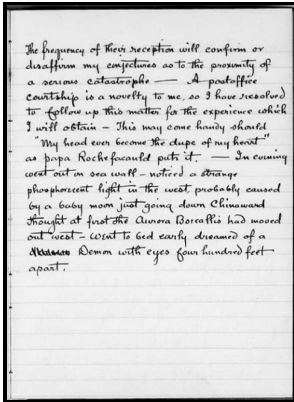 The frequency of their reception will confirm or
disaffirm my conjectures as to the proximity of
a serious catastrophe — A postoffice
courtship is a novelty to me, so I have resolved
to follow up this matter for the experience which
I will obtain – This may come handy should
"My head ever become the dupe of my heart"
as papa Rochefacauld puts it. — In evening
went out on sea wall – noticed a strange
phosphorecent light in the west, probably caused
by a baby moon just going down Chinaward
thought at first the Aurora Borcallis had moved
out west – went to bed early dreamed of a
Demon with eyes four hundred feet
apart.